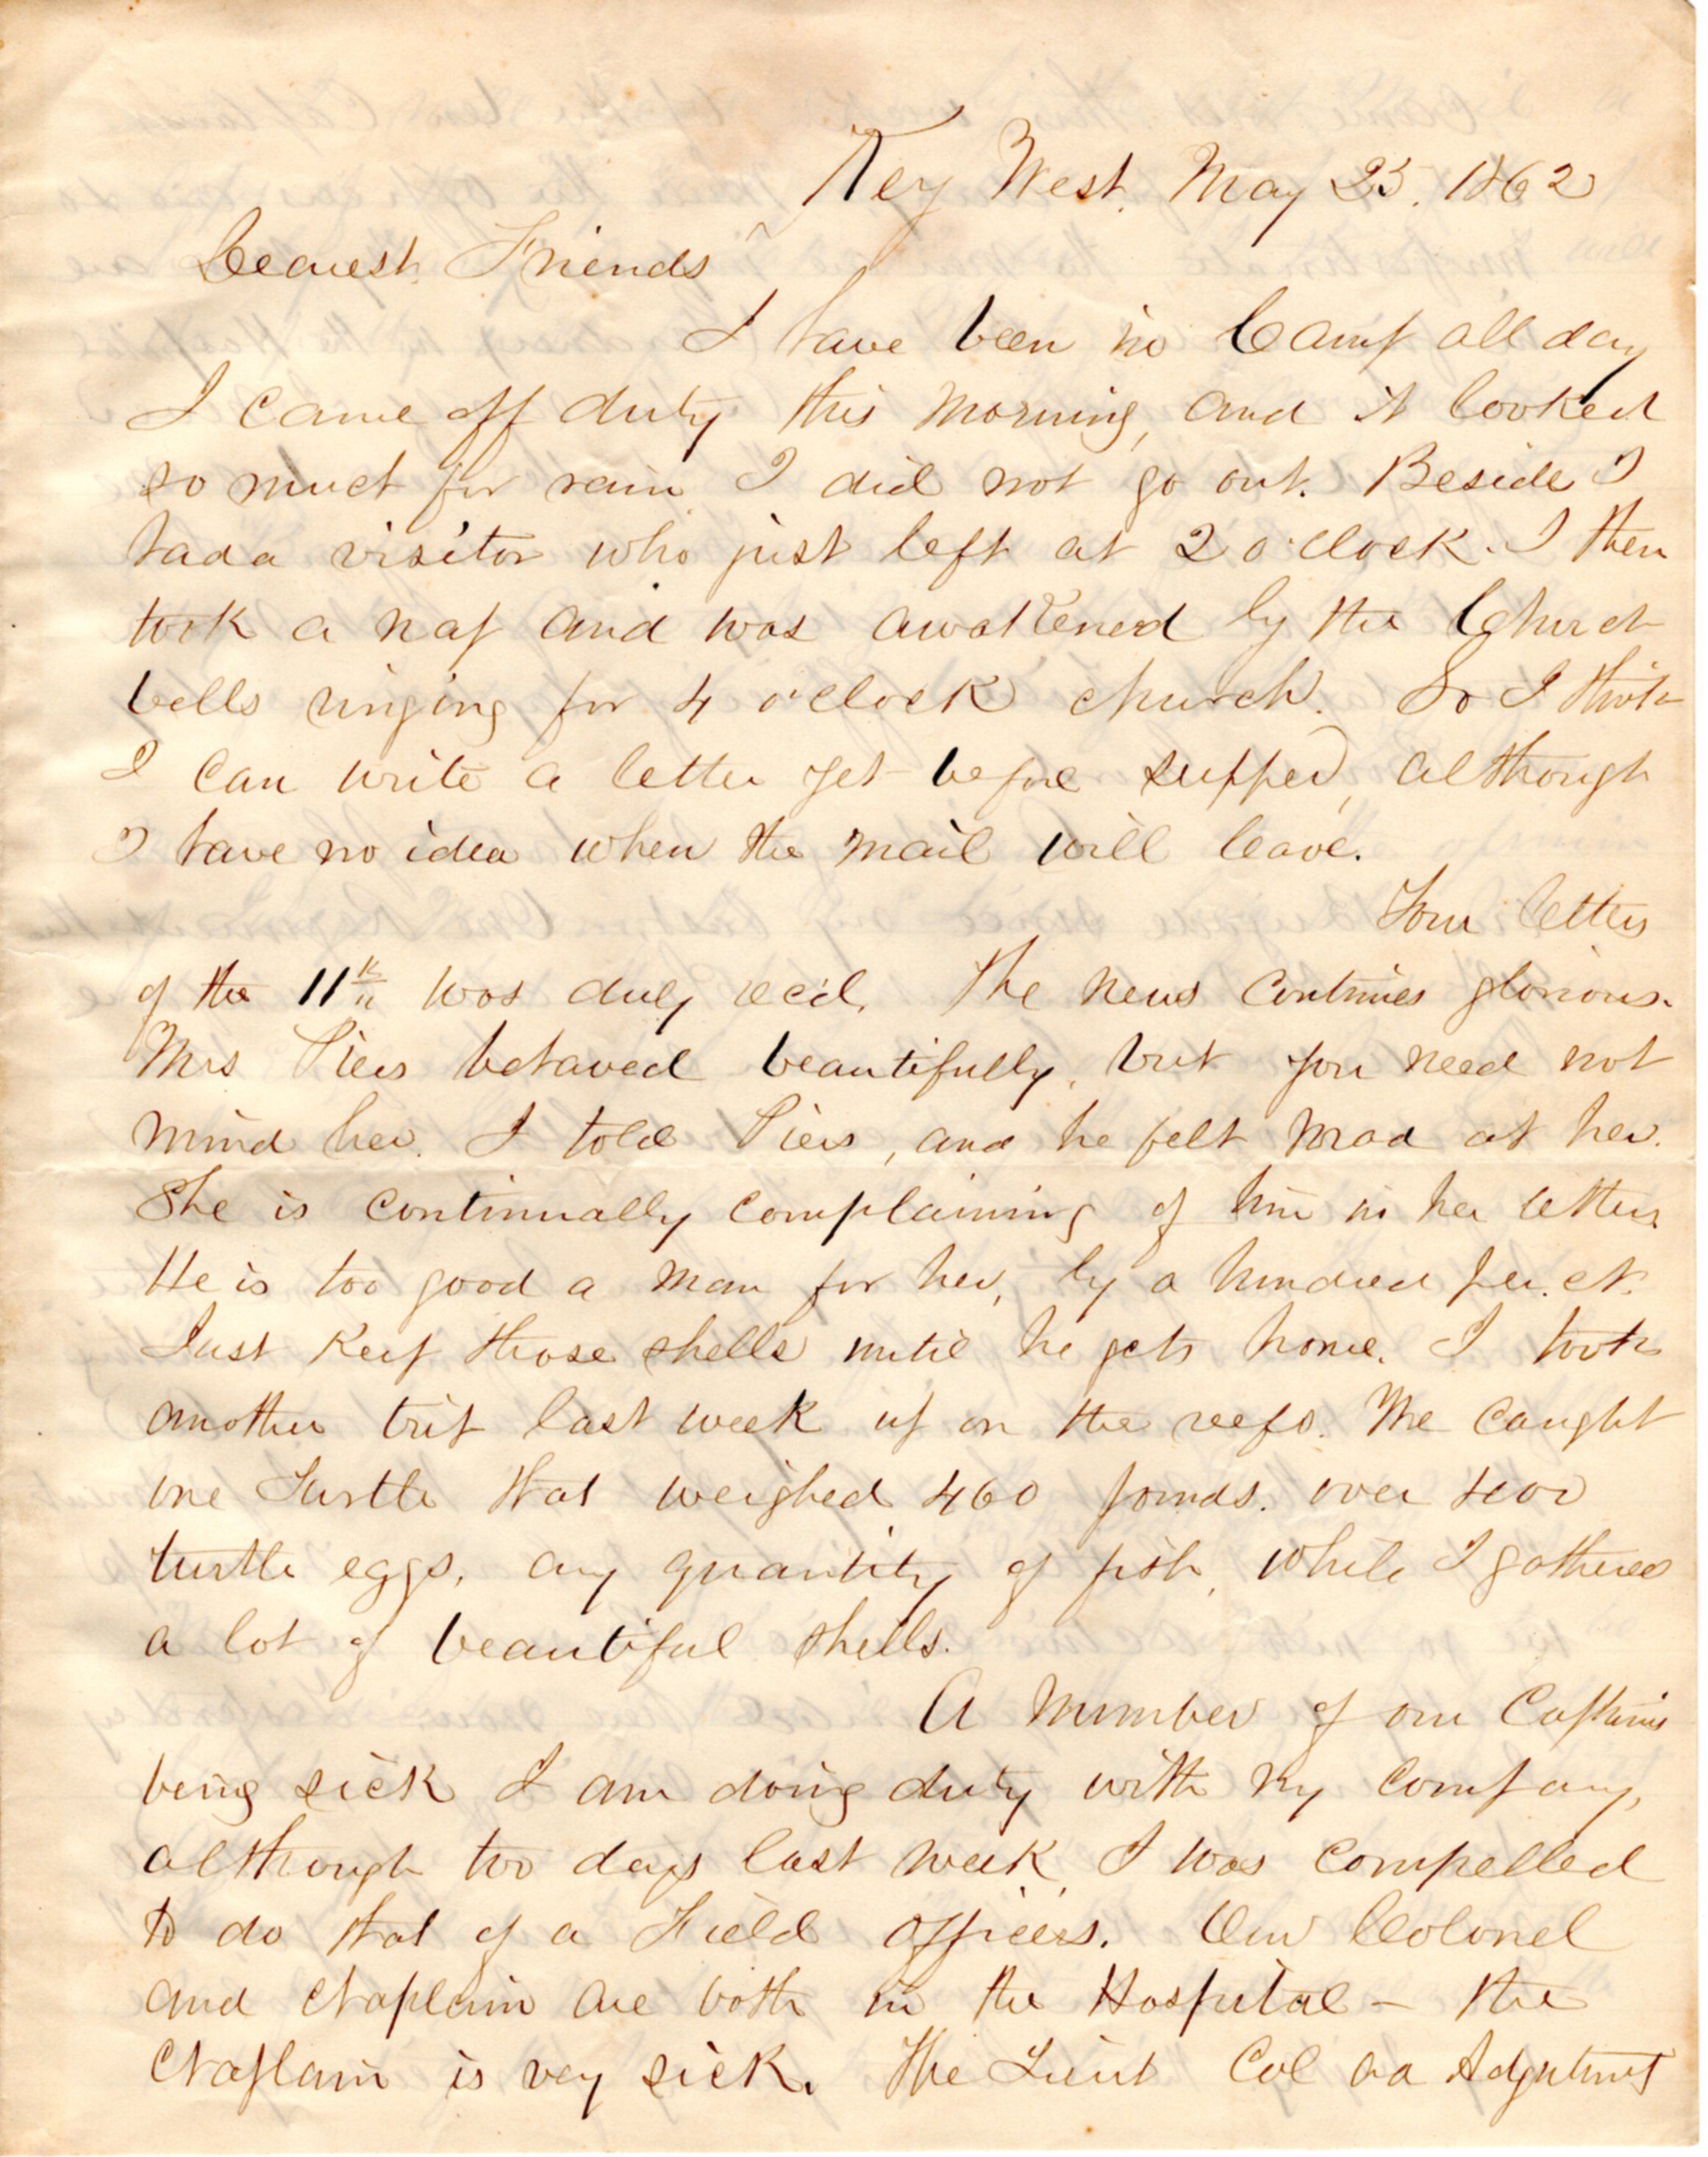 Key West. May 25. 1862
Dearest Friends
I have been in Camp all day
I came off duty this morning, and it looked
so much for rain I did not go out. Beside I
had a visitor who just left at 2 o'clock. I then
took a nap and was awakened by the Church
bells ringing for 4 o'clock church. So I think
I can write a letter yet before supper, although
I have no idea when the mail will leave.
Your letter
of the 11th was duly recd. The news continues glorious.
Mrs Piers behaved beautifully, but you need not
mind her. I told Piers, and he felt mad at her.
She is continually complaining of him in her letters
He is too good a man for her, by a hundred per. ct.
Just keep those shells until he gets home. I took
another trip last week up on the reefs. We caught
one Turtle that weighed 460 pounds. over
turtle eggs, any quantity of fish, while I gathered
a lot of beautiful shells.
A number of our Captains
being sick I am doing duty with my company,
although two days last week I was compelled
to do that of a Field officers. Our Colonel
and Chaplain are both in the Hospital – the
Chaplain is very sick. The Lieut Col Adjutant